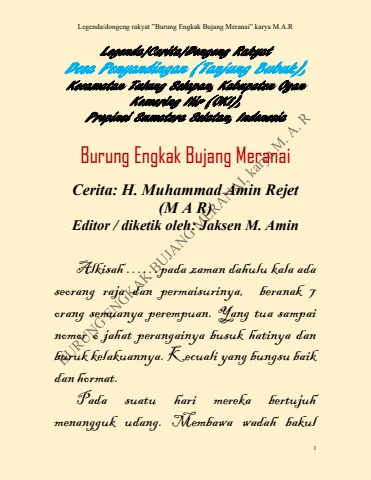 Legenda/dongeng rakyat "Burung Engkak Bujang Meranai" karya M.A.R
Legenda/Cerita/Dongeng Rakyat
Desa Penyandingan (Tanjung Bubut),
Kecamatan Tulung Selapan, Kabupaten Ogan
Komering Ilir (OKI),
Propinsi Sumatera Selatan, Indonesia
Burung Engkak Bujang Meranai
Cerita: H. Muhammad Amin Rejet
(M A R)
Editor / diketik oleh: Jaksen M. Amin
BURUNG ENGKAK BUJANG MERANAI, karya M. A. R
Alkisah ...... pada zaman dahulu kala ada
seorang raja dan permaisurinya, beranak 7
orang semuanya perempuan. Yang tua sampai
nomor 6 jahat perangainya busuk hatinya dan
buruk kelakuannya. Kecuali yang bungsu baik
dan hormat.
Pada suatu hari mereka bertujuh
menangguk udang. Membawa wadah bakul
1